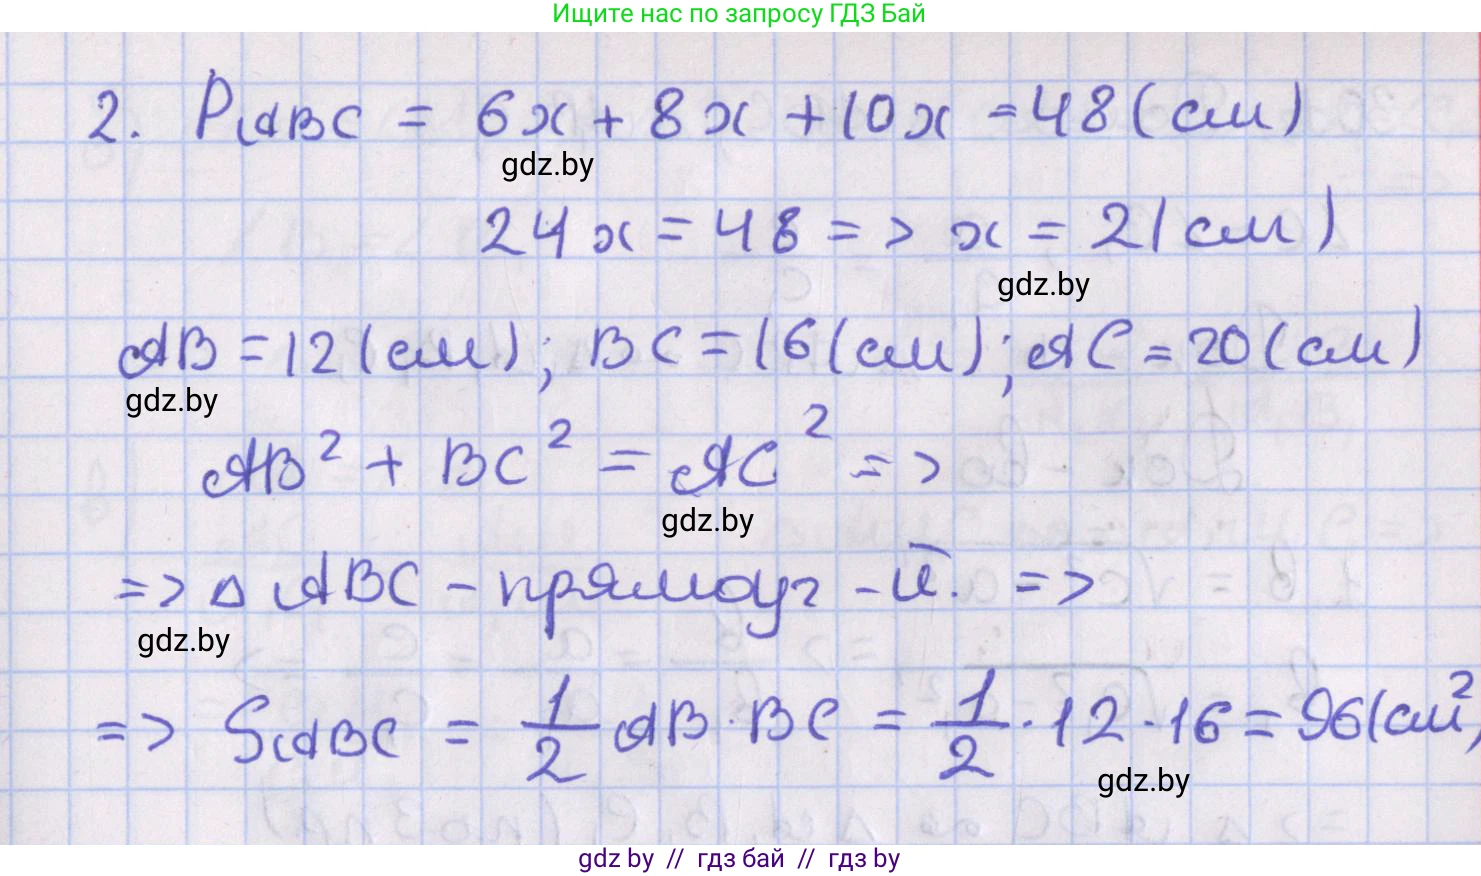 Ищите нас по запросу ГДЗ Бай
2. P ABC = 6x + 8x + 10x = 48 (см)
gdz.by
24x = 48 => x = 2 (см)
gdz.by
AB = 12 (см); BC = 16 (см); AC = 20 (см)
gdz.by
AB² + BC² = AC² =>
gdz.by
=> △ ABC - прямоуг-й. =>
gdz.by
=> S ABC = 1/2 AB · BC = 1/2 · 12 · 16 = 96 (см²)
gdz.by
gdz by // гдз бай // гдз by